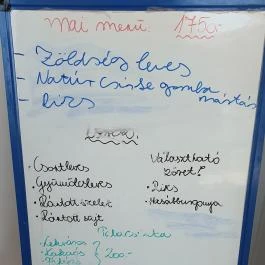 Mai menü: 1750.-
- Zöldséges leves
- Natúr csirke gomba mártás
- Rizs
Vacsora:
• Csontleves
• Gyümölcsleves
• Rántott szelet
• Rántott sajt
Választható köret!
• Rizs
• Hasábburgonya
Palacsinta
• Lekváros
• Kakaós
200.-